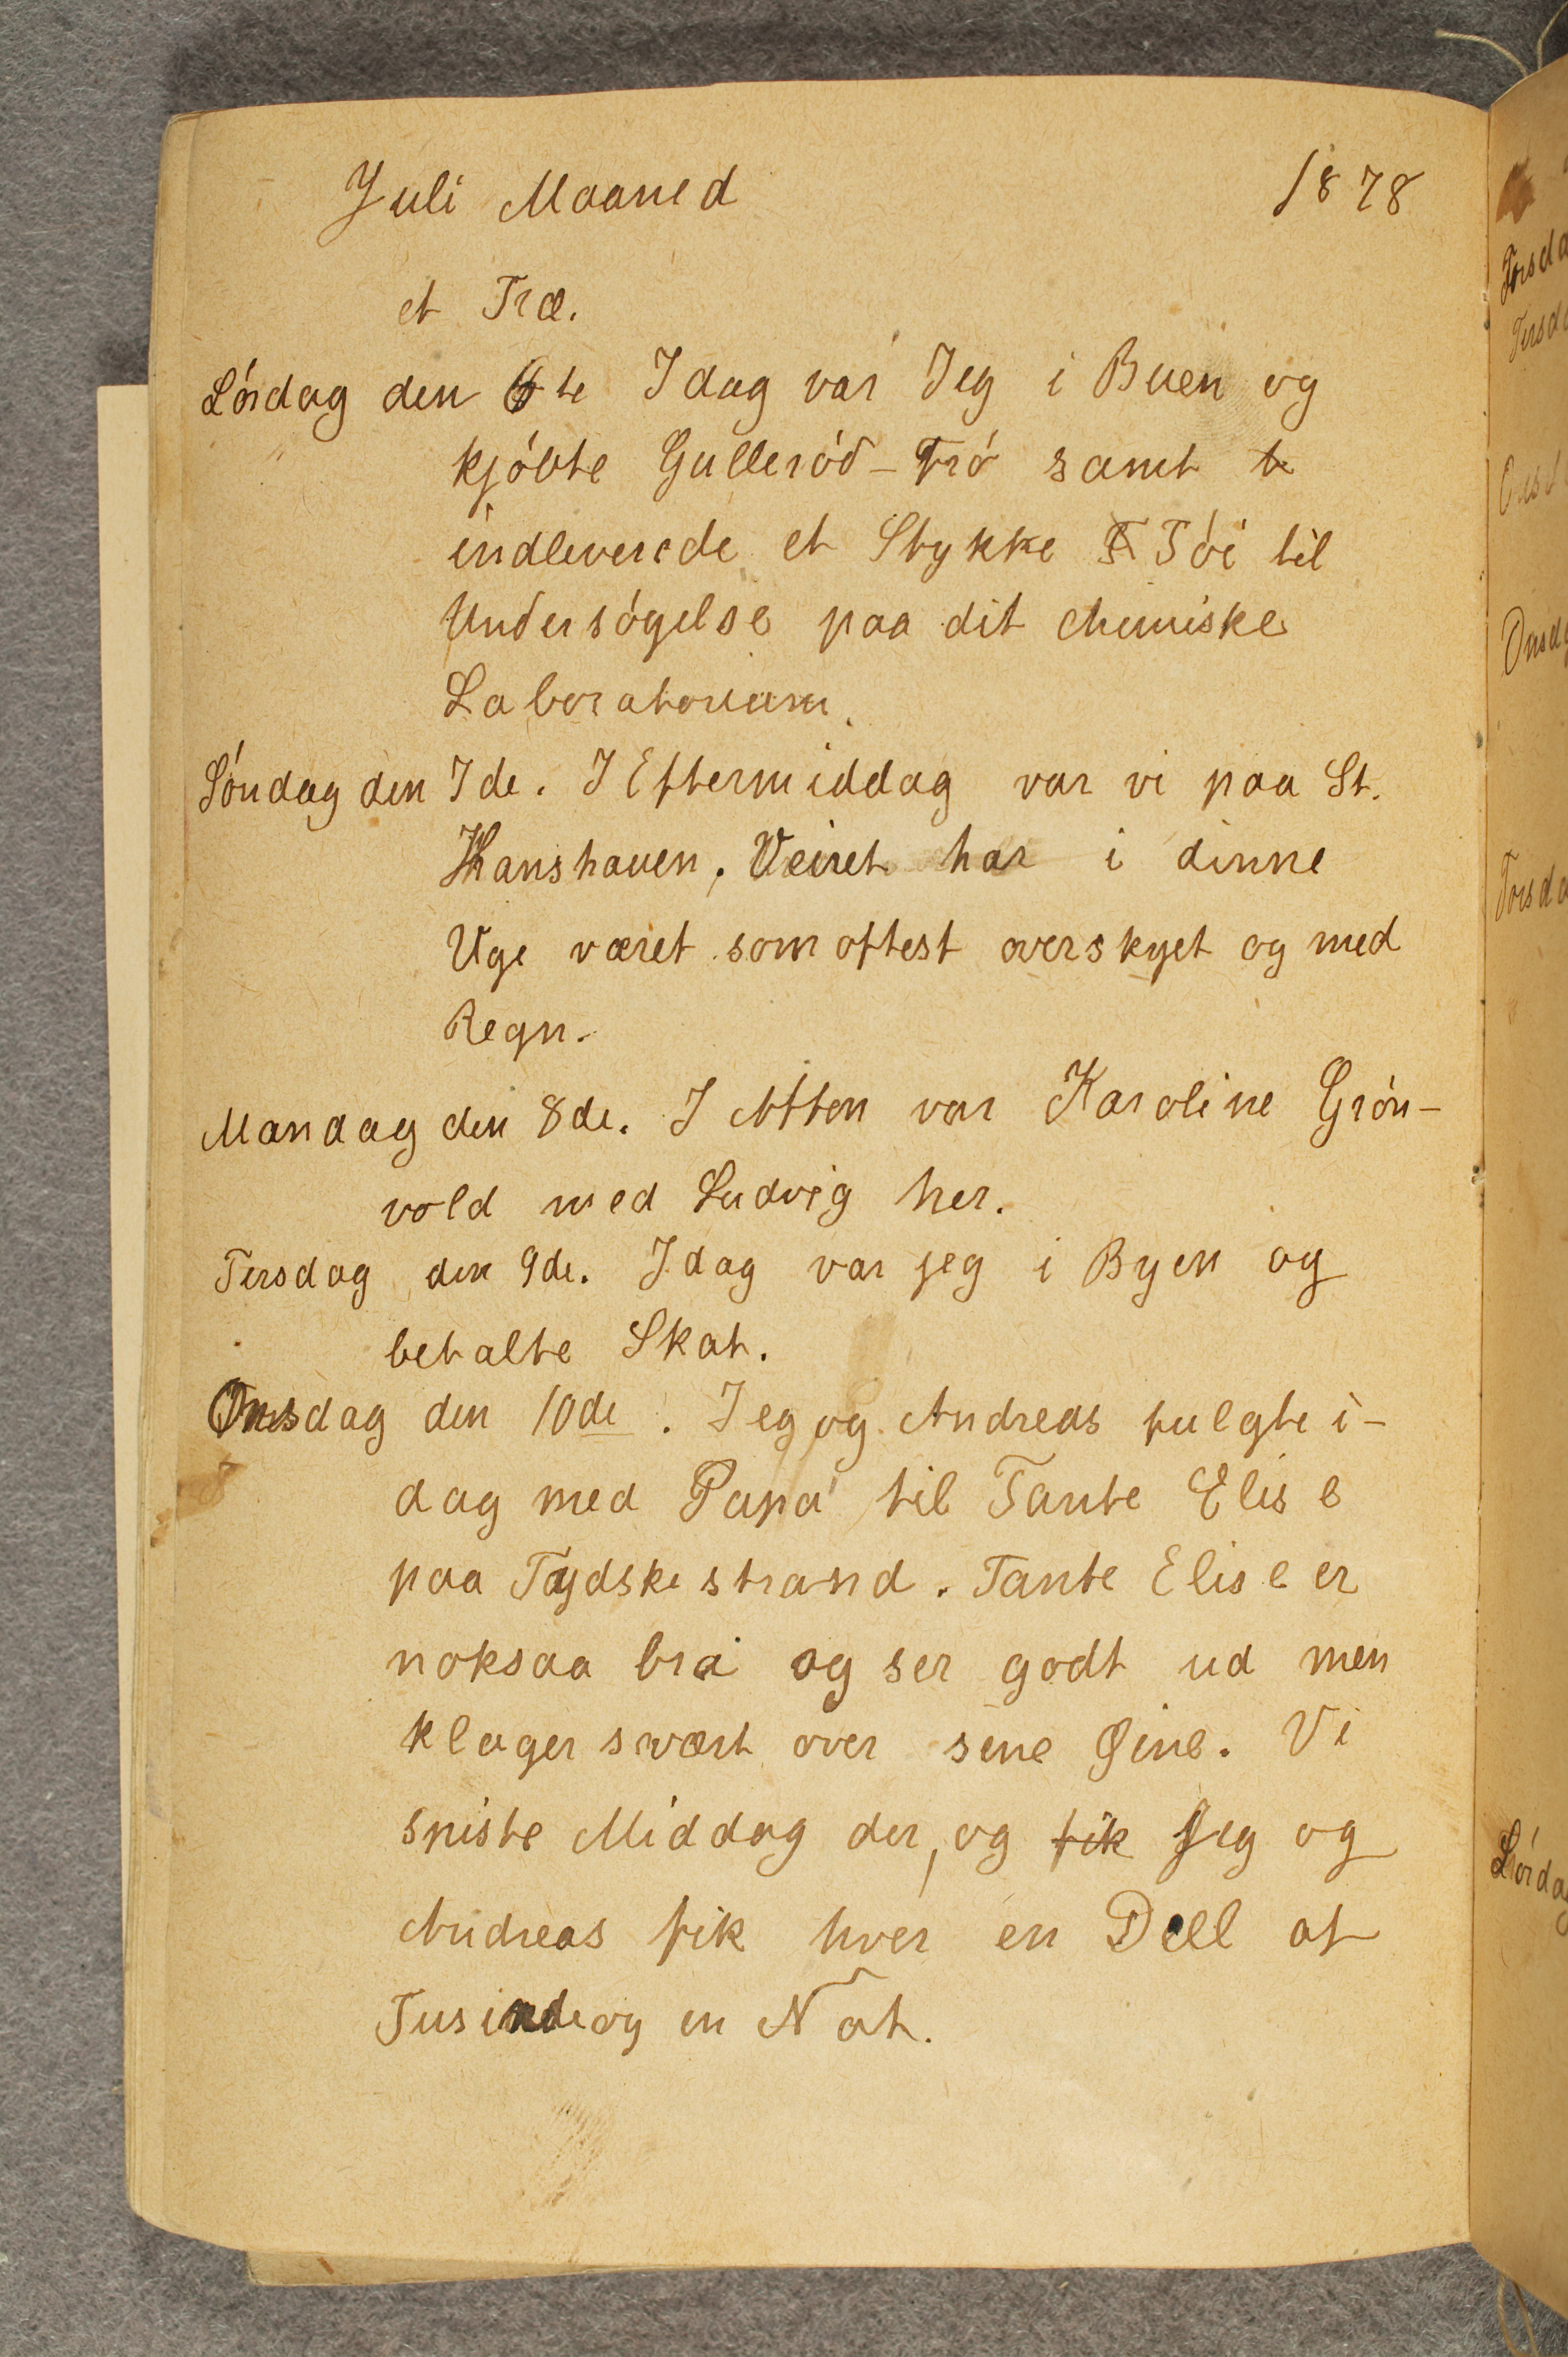 Juli Maaned 1878
et Træ.
Lördag den 6te Idag var Jeg i Buen og
kjöbte Gulleröd-Frö samt
indleverede et Stykke Töi til
Undersögelse paa det chemiske
Laboratorium.
Söndag den 7de. I Eftermiddag var vi paa St.
Hanshauen. Veiret har i denne
Uge været som oftest overskyet og med
Regn.
Mandag den 8de. I Aften var Karoline Grön-
vold med Ludvig her.
Tirsdag den 9de. Idag var jeg i Byen og
betalte Skat.
Onsdag den 10de. Jeg og Andreas fulgte i-
dag med Papa til Tante Elise
paa Tydskestrand. Tante Elise er
noksaa bra og ser godt ud men
klager svært over sine Øine. Vi
spiste Middag der, og fik Jeg og
Andreas fik hver en Deel af
Tusinde og en Nat.
Torsda
Tirsda
Onsd
Onsda
Torsda
Lördag